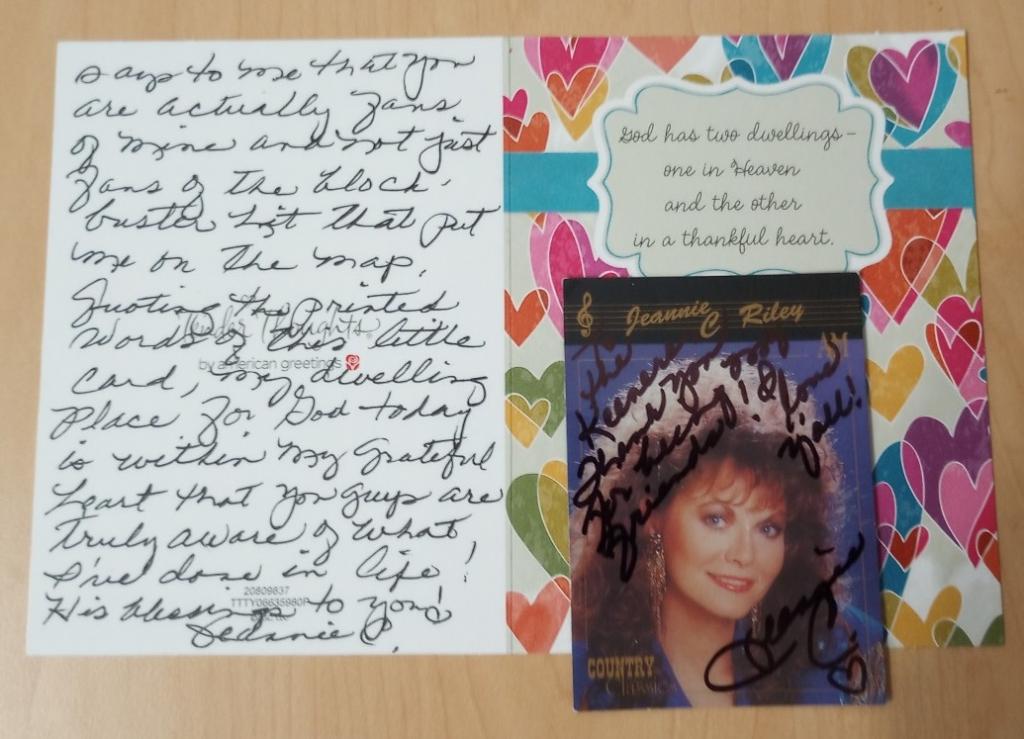 says to me that you
are actually fans
of mine and not just
fans of the block-
buster hit that put
me on the map.
Quoting the printed
words of this little
card, my dwelling
place for God today
is within my grateful
heart that you guys are
truly aware of what
I've done in life!
His blessings to you!
Jeannie C.
Tender Thoughts
by american greetings
20809837
God has two dwellings –
one in Heaven
and the other
in a thankful heart.
Jeannie C Riley
To
the
Keeners
Thank you guys
for being
friends! I love
y'all!
Jeannie C.
COUNTRY
Classics